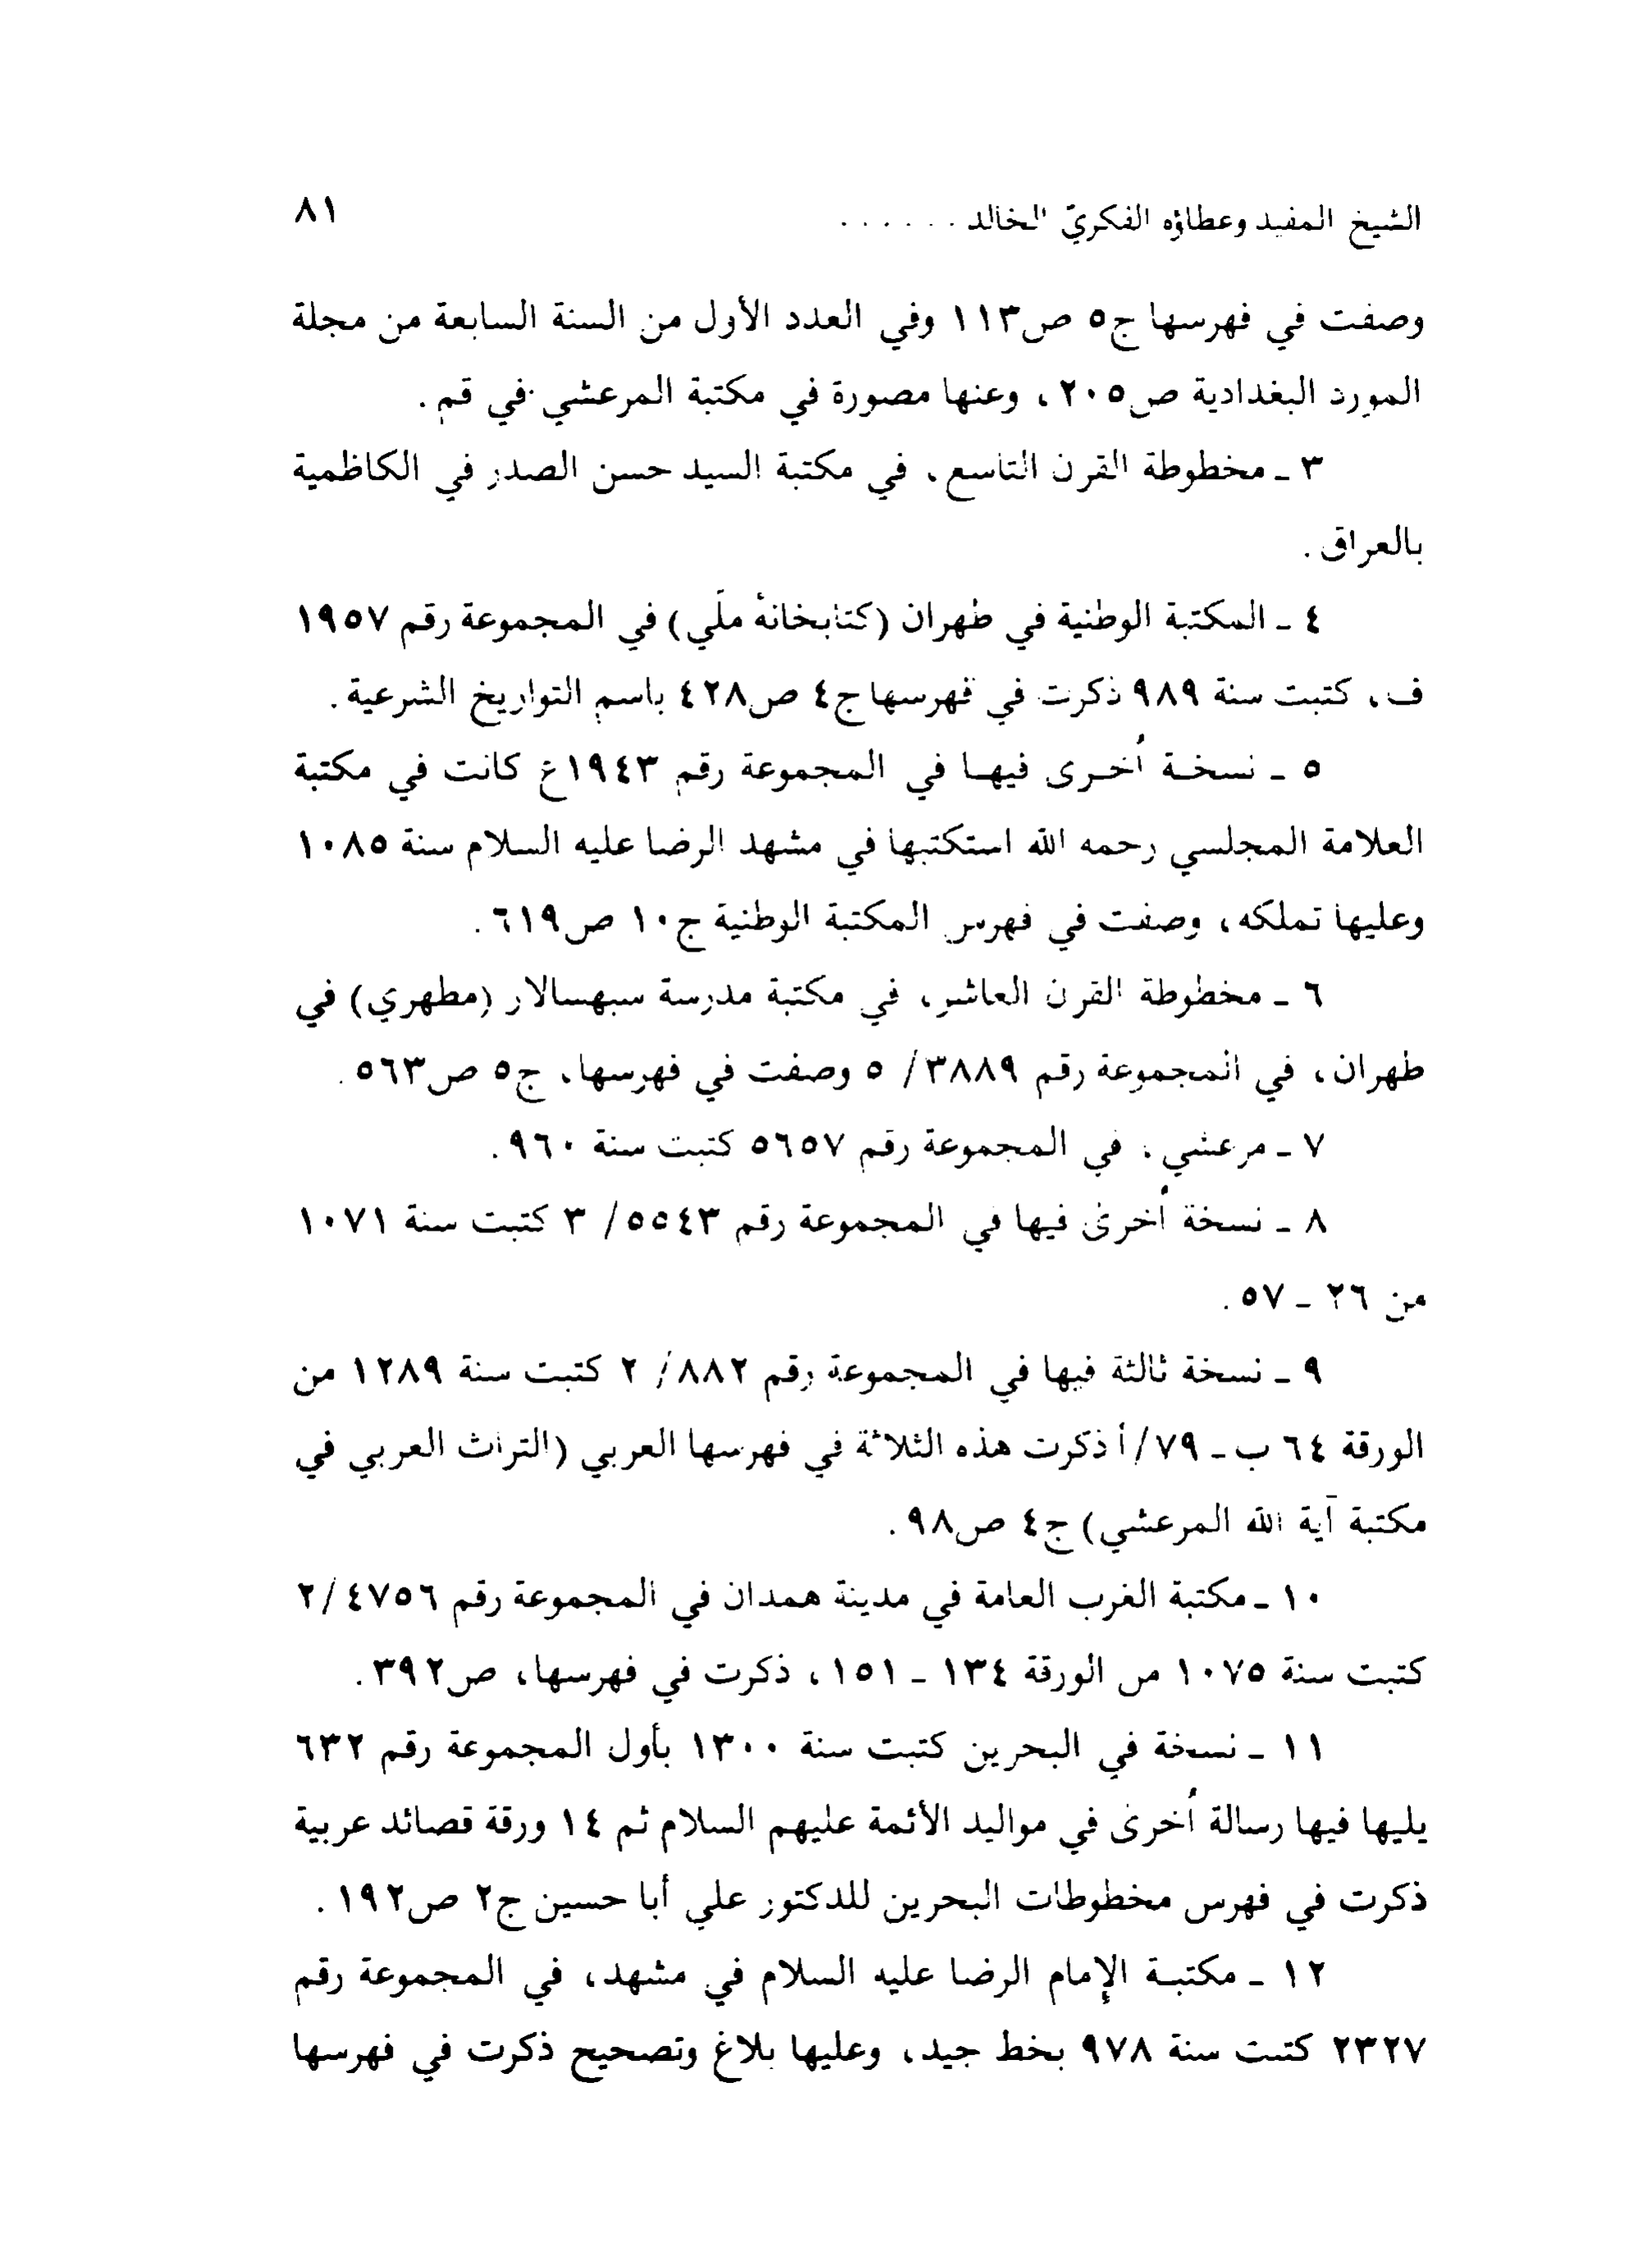 الشيخ المفيد وعطاؤه الفكريّ الخالد . . . . . . ٨١
وصفت في فهرسها ج٥ ص١١٣ وفي العدد الأول من السنة السابعة من مجلة
المورد البغدادية ص٢٠٥، وعنها مصورة في مكتبة المرعشي في قم.
٣ ـ مخطوطة القرن التاسع، في مكتبة السيد حسن الصدر في الكاظمية
بالعراق.
٤ ـ المكتبة الوطنية في طهران (كتابخانهٔ ملّي) في المجموعة رقم ١٩٥٧
ف، كتبت سنة ٩٨٩ ذكرت في فهرسها ج٤ ص٤٢٨ باسم التواريخ الشرعية.
٥ ـ نسخة أُخرى فيها في المجموعة رقم ١٩٤٣ع كانت في مكتبة
العلامة المجلسي رحمه الله استكتبها في مشهد الرضا عليه السلام سنة ١٠٨٥
وعليها تملكه، وصفت في فهرس المكتبة الوطنية ج١٠ ص٦١٩.
٦ ـ مخطوطة القرن العاشر، في مكتبة مدرسة سبهسالار (مطهري) في
طهران، في المجموعة رقم ٣٨٨٩/ ٥ وصفت في فهرسها، ج٥ ص٥٦٣.
٧ ـ مرعشي، في المجموعة رقم ٥٦٥٧ كتبت سنة ٩٦٠.
٨ ـ نسخة أُخرىٰ فيها في المجموعة رقم ٥٥٤٣/ ٣ كتبت سنة ١٠٧١
من ٢٦ ـ ٥٧.
٩ ـ نسخة ثالثة فيها في المجموعة رقم ٨٨٢/ ٢ كتبت سنة ١٢٨٩ من
الورقة ٦٤ ب ـ ٧٩/أ ذكرت هذه الثلاثة في فهرسها العربي (التراث العربي في
مكتبة آية الله المرعشي) ج٤ ص٩٨.
١٠ ـ مكتبة الغرب العامة في مدينة همدان في المجموعة رقم ٤٧٥٦/ ٢
كتبت سنة ١٠٧٥ من الورقة ١٣٤ ـ ١٥١، ذكرت في فهرسها، ص٣٩٢.
١١ ـ نسخة في البحرين كتبت سنة ١٣٠٠ بأول المجموعة رقم ٦٣٢
يليها فيها رسالة أُخرىٰ في مواليد الأئمة عليهم السلام ثم ١٤ ورقة قصائد عربية
ذكرت في فهرس مخطوطات البحرين للدكتور علي أبا حسين ج٢ ص١٩٢.
١٢ ـ مكتبة الإمام الرضا عليه السلام في مشهد، في المجموعة رقم
٢٣٢٧ كتبت سنة ٩٧٨ بخط جيد، وعليها بلاغ وتصحيح ذكرت في فهرسها